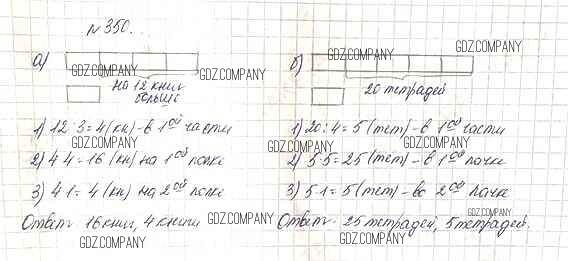 №350.
а)
GDZ.COMPANY
GDZ.COMPANY
на 12 книг
больше
1) 12 : 3 = 4 (кн) - в 1ой части
GDZ.COMPANY
2) 4·4 = 16 (кн) на 1ой полке
3) 4·1 = 4 (кн) на 2ой полке
Ответ: 16 книг, 4 книги
GDZ.COMPANY
GDZ.COMPANY
б)
GDZ.COMPANY
GDZ.COMPANY
20 тетрадей
1) 20 : 4 = 5 (тет) - в 1ой части
GDZ.COMPANY
2) 5·5 = 25 (тет) - в 1ой пачке
3) 5·1 = 5 (тет) - во 2ой пачке
GDZ.COMPANY
Ответ: 25 тетрадей, 5 тетрадей.
GDZ.COMPANY